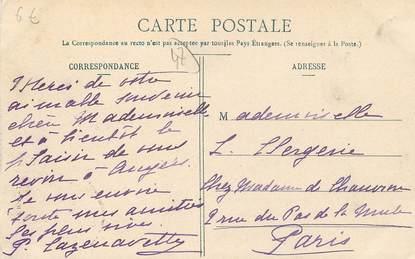 6 €
CARTE POSTALE
La Correspondance au recto n'est pas acceptée par tous les Pays Étrangers. (Se renseigner à la Poste.)
CORRESPONDANCE
47
ADRESSE
Merci de votre
aimable souvenir
chère Mademoiselle
et à bientôt le
plaisir de vous
revoir à
Je vous envoie
toute mes amitiés
les plus vives.
P.
Mademoiselle
L.
Chez Madame de Chauvron
2 rue du Pas de la Mule
Paris